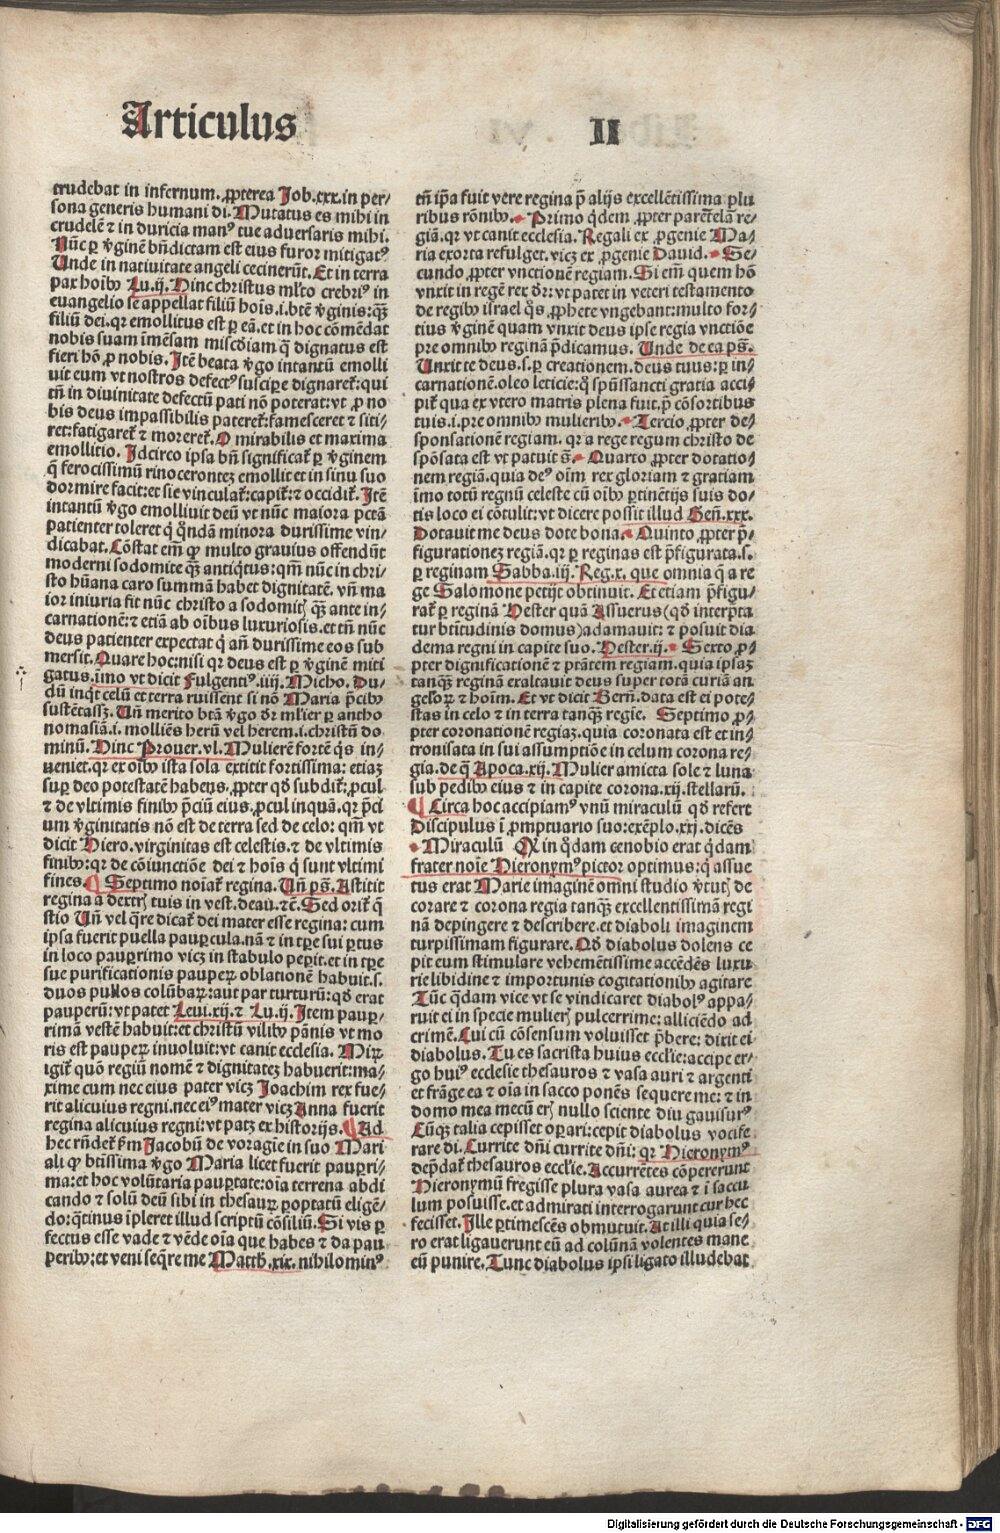 Articulus II
trudebat in infernum. ꝓpterea Job. xxx. in per⸗
sona generis humani di. Mutatus es mihi in
crudelē ⁊ in duricia manꝰ tue aduersaris mihi.
Nūc ꝑ v̄ginē bn̄dictam est eius furor mitigatꝰ
Unde in natiuitate angeli cecinerūt. Et in terra
pax hoībꝫ Lu. ij. Hinc christus ml̓to crebriꝰ in
euangelio se appellat filiū hoīs. i. btē v̄ginis: qꝫ̄
filiū dei. qr emollitus est ꝑ eā. et in hoc cōmēdat
nobis suam īmēsam miscd̓iam q̄ dignatus est
fieri hō ꝓ nobis. Jtē beata v̄go intantū emolli
uit eum vt nostros defectꝰ suscipe dignaret̉: qui
tn̄ in diuinitate defectū pati nō poterat: vt ꝓ no
bis deus impassibilis pateret̉: famesceret ⁊ siti⸗
ret: fatigaret̉ ⁊ moreret̉. O mirabilis et maxima
emollitio. Jdcirco ipsa bn̄ significat̉ ꝑ v̄ginem
q̄ ferocissimū rinoceronteꝫ emollit et in sinu suo
dormire facit: et sic vinculat̉: capit̉: ⁊ occidit̉. Jtē
intantū v̄go emolliuit deū vt nunc maiora pctā
patienter toleret q̄ q̄ndā minora durissime vin⸗
dicabat. Cōstat em̄ ꝙ multo grauius offendūt
moderni sodomite qꝫ̄ antiq̄tus: qm̄ nūc in chri⸗
sto hūana caro summā habet dignitatē. vn̄ ma
ior iniuria fit nūc christo a sodomitꝭ qꝫ̄ ante in⸗
carnationē: ⁊ etiā ab oībus luxuriosis. et tn̄ nūc
deus patienter expectat q̄ an̄ durissime eos sub
mersit. Quare hoc: nisi qr deus est ꝑ v̄ginē miti
gatus. īmo vt dicit Fulgentiꝰ. iiij. Micho. Du⸗
dū inq̄t celū et terra ruissent si nō Maria p̄cibꝫ
sustētassꝫ. Un̄ merito btā v̄go dr̄ ml̓ier ꝑ antho
nomasiā. i. molliēs herū vel herem. i. christū do
minū. Hinc Prouer. vl. Mulierē fortē q̄s in⸗
ueniet. qr ex oībꝫ ista sola extitit fortissima: etiaꝫ
suꝑ deo potestatē habens. ꝓpter qd̓ subdit̉: ꝓcul
⁊ de vltimis finibꝫ p̄ciū eius. ꝓcul inquā. qr p̄ci
um v̄ginitatis nō est de terra sed de celo: qm̄ vt
dicit Hiero. virginitas est celestis. ⁊ de vltimis
finibꝫ: qr de cōiunctiōe dei ⁊ hoīs q̄ sunt vltimi
fines. ¶ Septimo noīat̉ regina. Un̄ ps̄. Astitit
regina a dextrꝭ tuis in vest. deau. ⁊c̄. Sed orit̉ q̄
stio Un̄ vel q̄re dicat̉ dei mater esse regina: cum
ipsa fuerit puella pauꝑcula. nā ⁊ in tꝑe sui ꝑtus
in loco pauꝑrimo vicꝫ in stabulo peꝑit. et in tꝑe
sue purificationis pauperꝝ oblationē habuit. s.
duos pullos colūbarꝝ: aut par turturū: qd̓ erat
pauperū: vt patet Leui. xij. ⁊ Lu. ij. Jtem pauꝑ⸗
rimā vestē habuit: et christū vilibꝫ pānis vt mo
ris est pauperꝝ inuoluit: vt canit ecclesia. Mirꝝ
igit̉ quō regiū nomē ⁊ dignitateꝫ habuerit: ma⸗
xime cum nec eius pater vicꝫ Joachim rex fue⸗
rit alicuius regni. nec eiꝰ mater vicꝫ Anna fuerit
regina alicuius regni: vt patꝫ ex historijs. ¶ Ad
hec rn̄det̉ ẜm Jacobū de voragīe in suo Mari
ali ꝙ btīssima v̄go Maria licet fuerit pauꝑri⸗
ma: et hoc volūtaria pauꝑtate: oīa terrena abdi
cando ⁊ solū deū sibi in thesaurꝝ ꝑoptatū eligē⸗
do: q̄tinus īpleret illud scriptū cōsiliū. Si vis ꝑ
fectus esse vade ⁊ vēde oīa que habes ⁊ da pau
peribꝫ: et veni seq̄re me Matth. xix. nihilominꝰ
tn̄ ip̄a fuit vere regina p̄ alijs excellētissima plu
ribus rōnibꝫ. Primo q̄dem ꝓpter parētelā re⸗
giā. qr vt canit ecclesia. Regali ex ꝓgenie Ma⸗
ria exorta refulget. vicꝫ ex ꝓgenie Dauid. Se⸗
cundo ꝓpter vnctionem regiam. Si em̄ quem hō
vnxit in regē rex dr̄: vt patet in veteri testamento
de regibꝫ israel q̄s ꝓphete vngebant: multo for⸗
tius v̄ginē quam vnxit deus ipse regia vnctiōe
pre omnibꝫ reginā p̄dicamus. Unde de ea ps̄.
Unxit te deus. s. ꝑ creationem. deus tuus: ꝑ in⸗
carnationē. oleo leticie: q̄ spūssancti gratia acci⸗
pit̉ qua ex vtero matris plena fuit. p̄ cōsortibus
tuis. i. pre omnibꝫ mulieribꝫ. Tercio ꝓpter de⸗
sponsationē regiam. qr a rege regum christo de
spōsata est vt patuit s̄. Quarto ꝓpter dotatio⸗
nem regiā. quia deꝰ oīm rex gloriam ⁊ gratiam
īmo totū regnū celeste cū oībꝫ ꝑtinētijs suis do⸗
tis loco ei cōtulit: vt dicere possit illud Gen̄. xxx.
Dotauit me deus dote bona. Quinto ꝓpter p̄⸗
figurationeꝫ regiā. qr ꝑ reginas est p̄figurata. s.
ꝑ reginam Sabba. iij. Reg. x. que omnia q̄ a re
ge Salomone petijt obtinuit. Et etiam p̄figu⸗
rat̉ ꝑ reginā Hester quā Assuerus (qd̓ interp̄ta
tur btītudinis domus) adamauit: ⁊ posuit dia
dema regni in capite suo. Hester. ij. Sexto ꝓ⸗
pter dignificationē ⁊ ptātem regiam. quia ipsaꝫ
tanqꝫ̄ reginā exaltauit deus super totā curiā an
gelorꝝ ⁊ hoīm. Et vt dicit Bern̄. data est ei pote⸗
stas in celo ⁊ in terra tanqꝫ̄ regie. Septimo ꝓ⸗
pter coronationē regiaꝫ. quia coronata est et in⸗
tronisata in sui assumptiōe in celum corona re⸗
gia. de q̄ Apoca. xij. Mulier amicta sole ⁊ luna
sub pedibꝫ eius ⁊ in capite corona. xij. stellarū.
¶ Circa hoc accipiamꝰ vnū miraculū qd̓ refert
Discipulus ī ꝓmptuario suo: exēplo. xxj. dicēs
Miraculū Qr in q̄dam cenobio erat q̄dam
frater noīe Hieronymꝰ pictor optimus: q̄ assue
tus erat Marie imaginē omni studio v̄tutꝭ de
corare ⁊ corona regia tanqꝫ̄ excellentissimā regi
nā depingere ⁊ describere. et diaboli imaginem
turpissimam figurare. Qd̓ diabolus dolens ce
pit eum stimulare vehemētissime accedēs luxu
rie libidine ⁊ importunis cogitationibꝫ agitare
Tūc q̄dam vice vt se vindicaret diabolꝰ appa⸗
ruit ei in specie mulierꝭ pulcerrime: alliciēdo ad
crimē. Cui cū cōsensum voluisset p̄bere: dixit ei
diabolus. Tu es sacrista huius ecclīe: accipe er⸗
go huiꝰ ecclesie thesauros ⁊ vasa auri ⁊ argenti
et frāge ea ⁊ oīa in sacco ponēs sequere me: ⁊ in
domo mea mecū erꝭ nullo sciente diu gauisurꝰ
Cūqꝫ talia cepisset oꝑari: cepit diabolus vocife
rare di. Currite dn̄i currite dn̄i: qr Hieronymꝰ
dep̄dat̉ thesauros ecclīe. Accurrētes cōpererunt
Hieronymū fregisse plura vasa aurea ⁊ ī saccu
lum posuisse. et admirati interrogarunt cur hec
fecisset. Jlle ꝑtimescēs obmutuit. At illi quia se⸗
ro erat ligauerunt eū ad colūnā volentes mane
eū punire. Tunc diabolus ipsi ligato illudebat
Digitalisierung gefördert durch die Deutsche Forschungsgemeinschaft - DFG